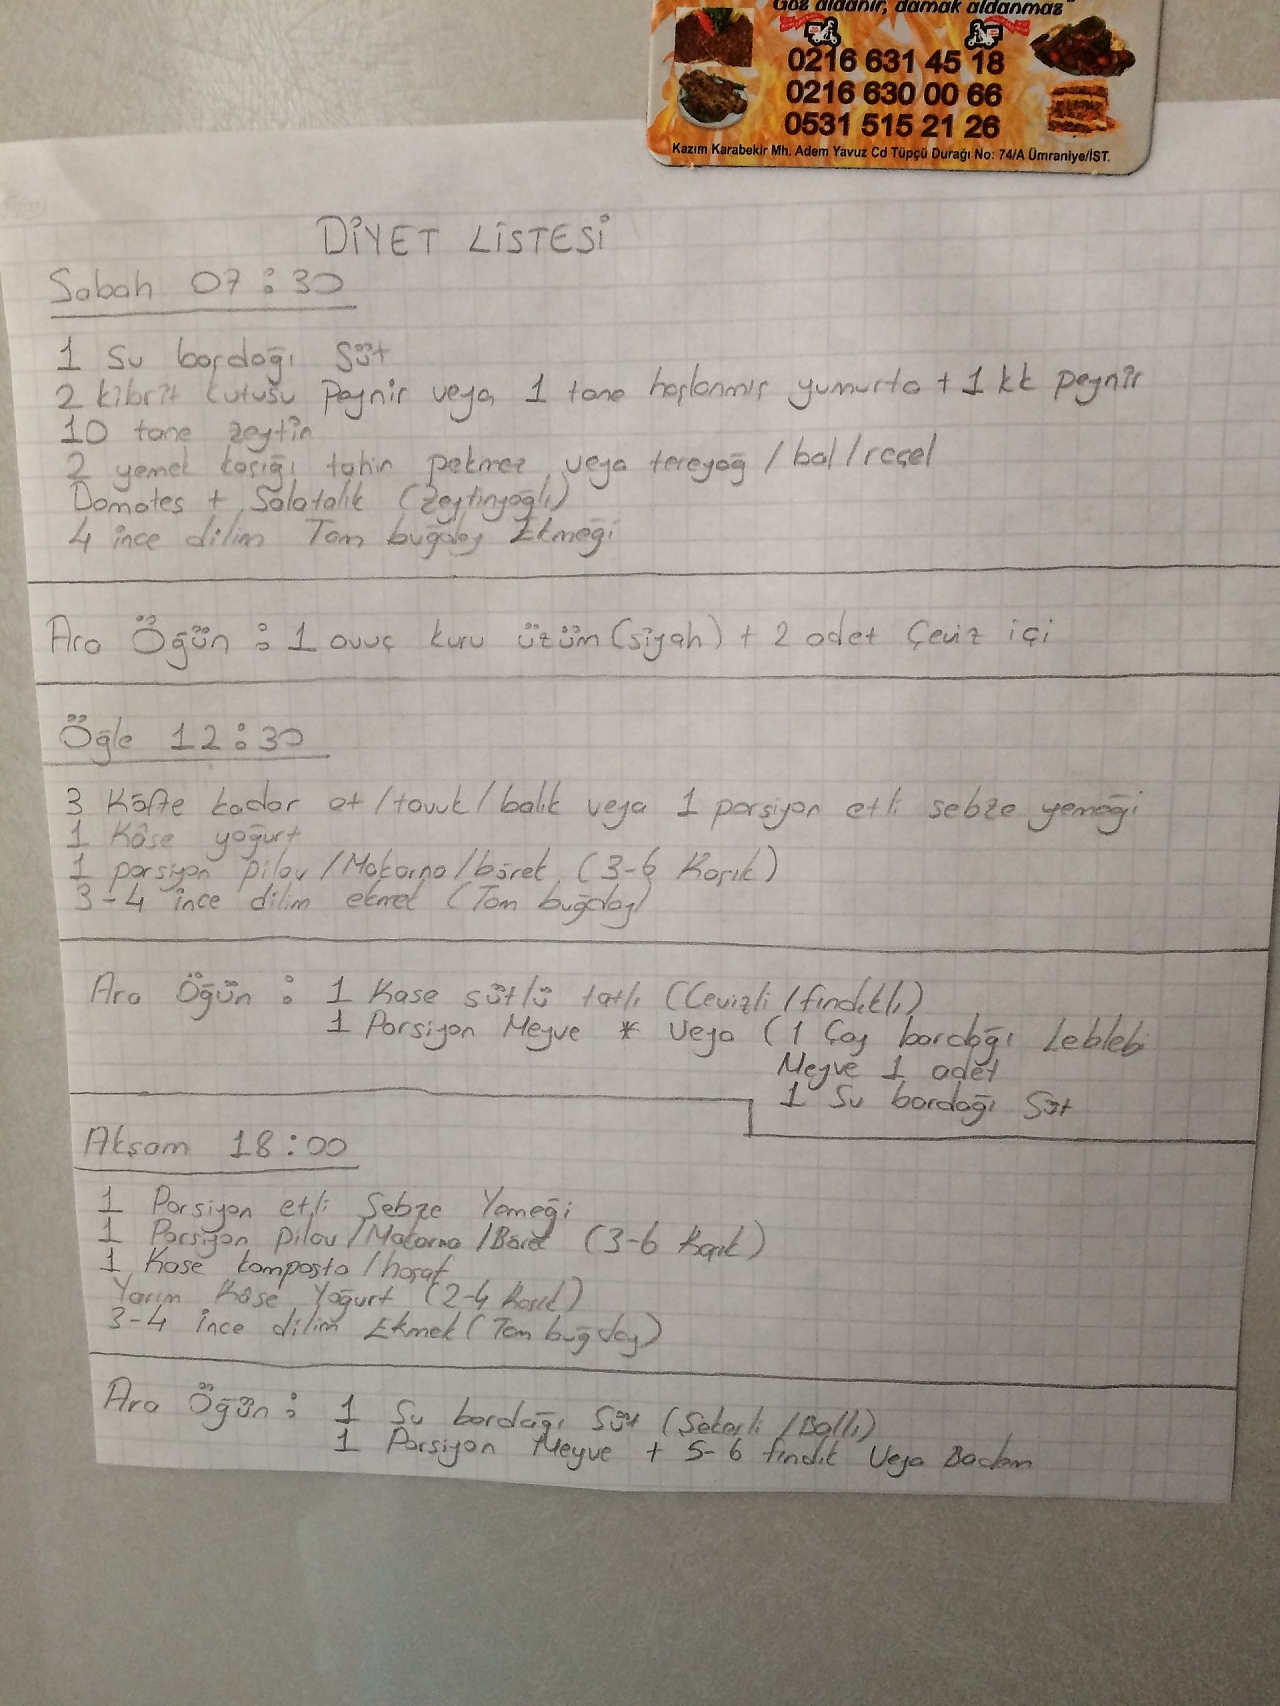 Göz aldanır, damak aldanmaz"
0216 631 45 18
0216 630 00 66
0531 515 21 26
Kazım Karabekir Mh. Adem Yavuz Cd Tüpçü Durağı No: 74/A Ümraniye/İST.
DİYET LİSTESİ
Sabah 07:30
1 Su bardağı Süt
2 kibrit kutusu Peynir veya 1 tane haşlanmış yumurta + 1 kk peynir
10 tane zeytin
2 yemek kaşığı tahin pekmez veya tereyağ / bal / reçel
Domates + Salatalık (Zeytinyağlı)
4 ince dilim Tam buğday Ekmeği
Ara Öğün : 1 avuç kuru üzüm (siyah) + 2 adet Ceviz içi
Öğle 12:30
3 Köfte kadar et / tavuk / balık veya 1 porsiyon etli sebze yemeği
1 Kâse yoğurt
1 porsiyon pilav / Makarna / börek (3-6 Kaşık)
3-4 ince dilim ekmek (Tam buğday)
Ara Öğün : 1 Kase sütlü tatlı (Cevizli / fındıklı)
1 Porsiyon Meyve * Veya (1 Çay bardağı Leblebi
Meyve 1 adet
1 Su bardağı Süt
Akşam 18:00
1 Porsiyon etli Sebze Yemeği
1 Porsiyon Pilav / Makarna / Börek (3-6 Kaşık)
1 Kase komposto / hoşaf
Yarım Kâse Yoğurt (2-4 Kaşık)
3-4 ince dilim Ekmek (Tam buğday)
Ara Öğün : 1 Su bardağı Süt (Şekerli / Ballı)
1 Porsiyon Meyve + 5-6 fındık Veya Badem